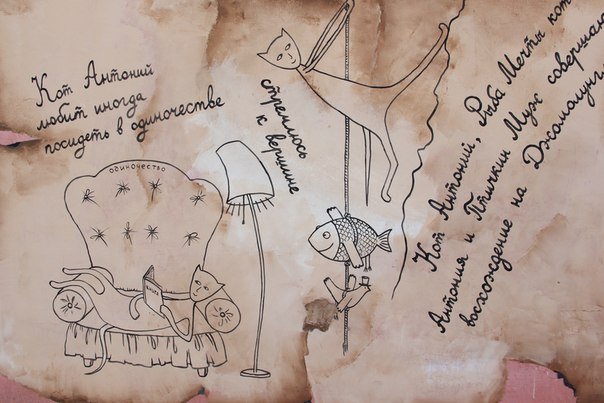 Кот Антоний
любит иногда
посидеть в одиночестве
одиночество
стремлюсь
к вершине
Кот Антоний, Рыба Мечты кота
Антония и Птичкин Муж совершают
восхождение на